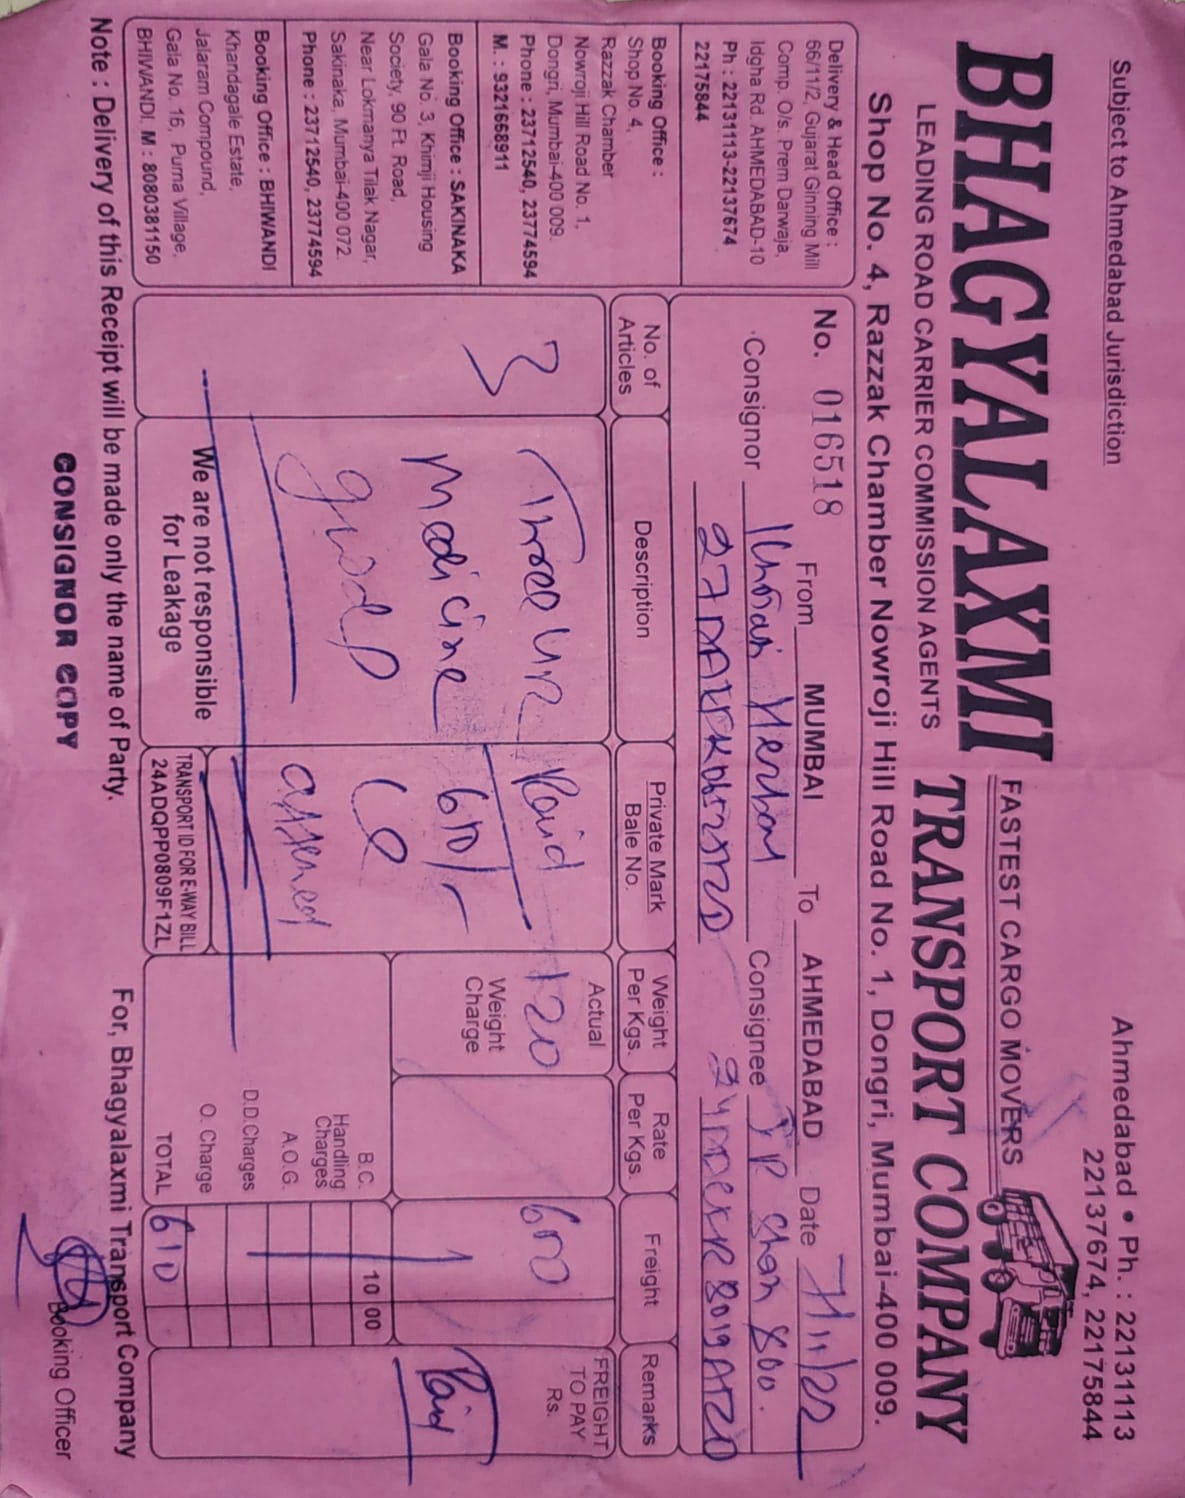 Subject to Ahmedabad Jurisdiction
Ahmedabad • Ph. : 22131113
22137674, 22175844
BHAGYALAXMI
FASTEST CARGO MOVERS
TRANSPORT COMPANY
LEADING ROAD CARRIER COMMISSION AGENTS
Shop No. 4, Razzak Chamber Nowroji Hill Road No. 1, Dongri, Mumbai-400 009.
Delivery & Head Office :
66/11/2, Gujarat Ginning Mill
Comp. O/s. Prem Darwaja,
Idgha Rd. AHMEDABAD-10
Ph : 22131113-22137674
22175844
Booking Office :
Shop No. 4,
Razzak Chamber
Nowroji Hill Road No. 1,
Dongri, Mumbai-400 009.
Phone : 23712540, 23774594
M. : 9321668911
Booking Office : SAKINAKA
Gala No. 3, Khimji Housing
Society, 90 Ft. Road,
Near Lokmanya Tilak Nagar,
Sakinaka, Mumbai-400 072.
Phone : 23712540, 23774594
Booking Office : BHIWANDI
Khandagale Estate,
Jalaram Compound,
Gala No. 16, Purna Village,
BHIWANDI. M : 8080381150
No. 016518 From MUMBAI To AHMEDABAD Date 7/11/22
Consignor Herbal Consignee
No. of Articles
Description
Private Mark
Bale No.
Weight Per Kgs.
Rate Per Kgs.
Freight
Remarks
3
Three
Paid
Actual
120
600
FREIGHT TO PAY Rs.
medicine
610/-
Weight Charge
Paid
B.C. 10 00
Handling Charges
A.O.G.
D.D.Charges
O. Charge
TOTAL 610
We are not responsible
for Leakage
TRANSPORT ID FOR E-WAY BILL
24ADQPP0809F1ZL
Note : Delivery of this Receipt will be made only the name of Party.
For, Bhagyalaxmi Transport Company
CONSIGNOR COPY
Booking Officer